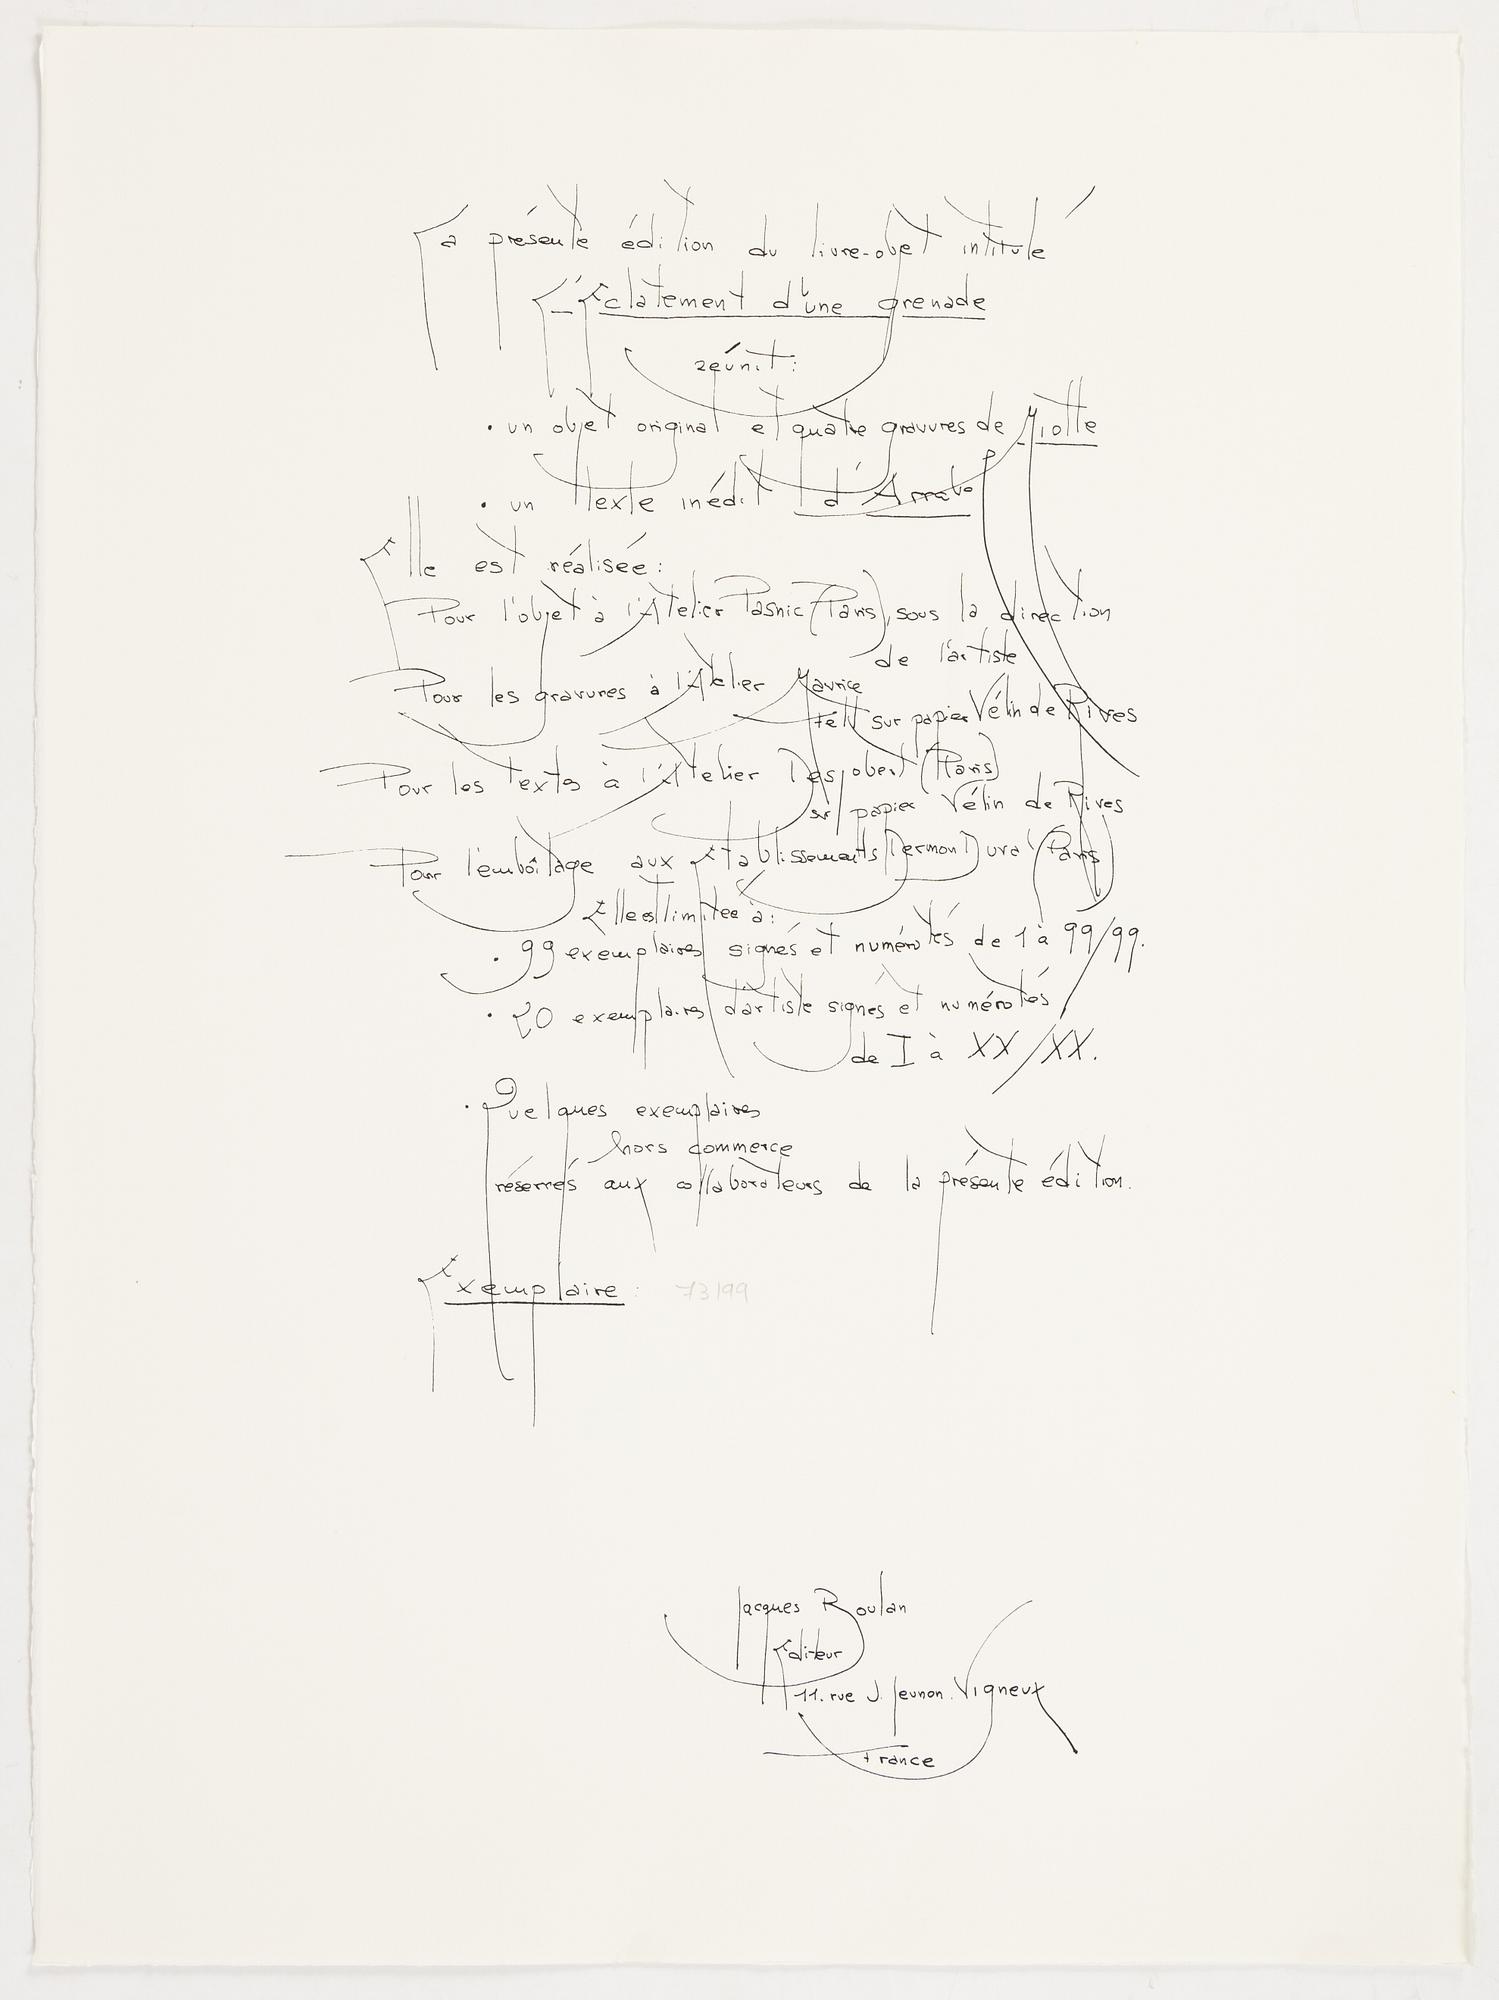 La présente édition du livre-objet intitulé
L'Eclatement d'une grenade
réunit:
• un objet original et quatre gravures de Miotte
• un texte inédit d'Arrabal
Elle est réalisée:
Pour l'objet à l'Atelier Pasnic (Paris), sous la direction
de l'artiste
Pour les gravures à l'Atelier Maurice
Felt sur papier Vélin de Rives
Pour les textes à l'Atelier Desjobert (Paris)
sur papier Vélin de Rives
Pour l'emboîtage aux Etablissements Dermont Duval (Paris)
Elle est limitée à:
• 99 exemplaires signés et numérotés de 1 à 99/99.
• 20 exemplaires d'artiste signés et numérotés
de I à XX/XX.
• Quelques exemplaires
hors commerce
réservés aux collaborateurs de la présente édition.
Exemplaire: 73/99
Jacques Boulan
Editeur
11. rue J. Jeunon. Vigneux
France